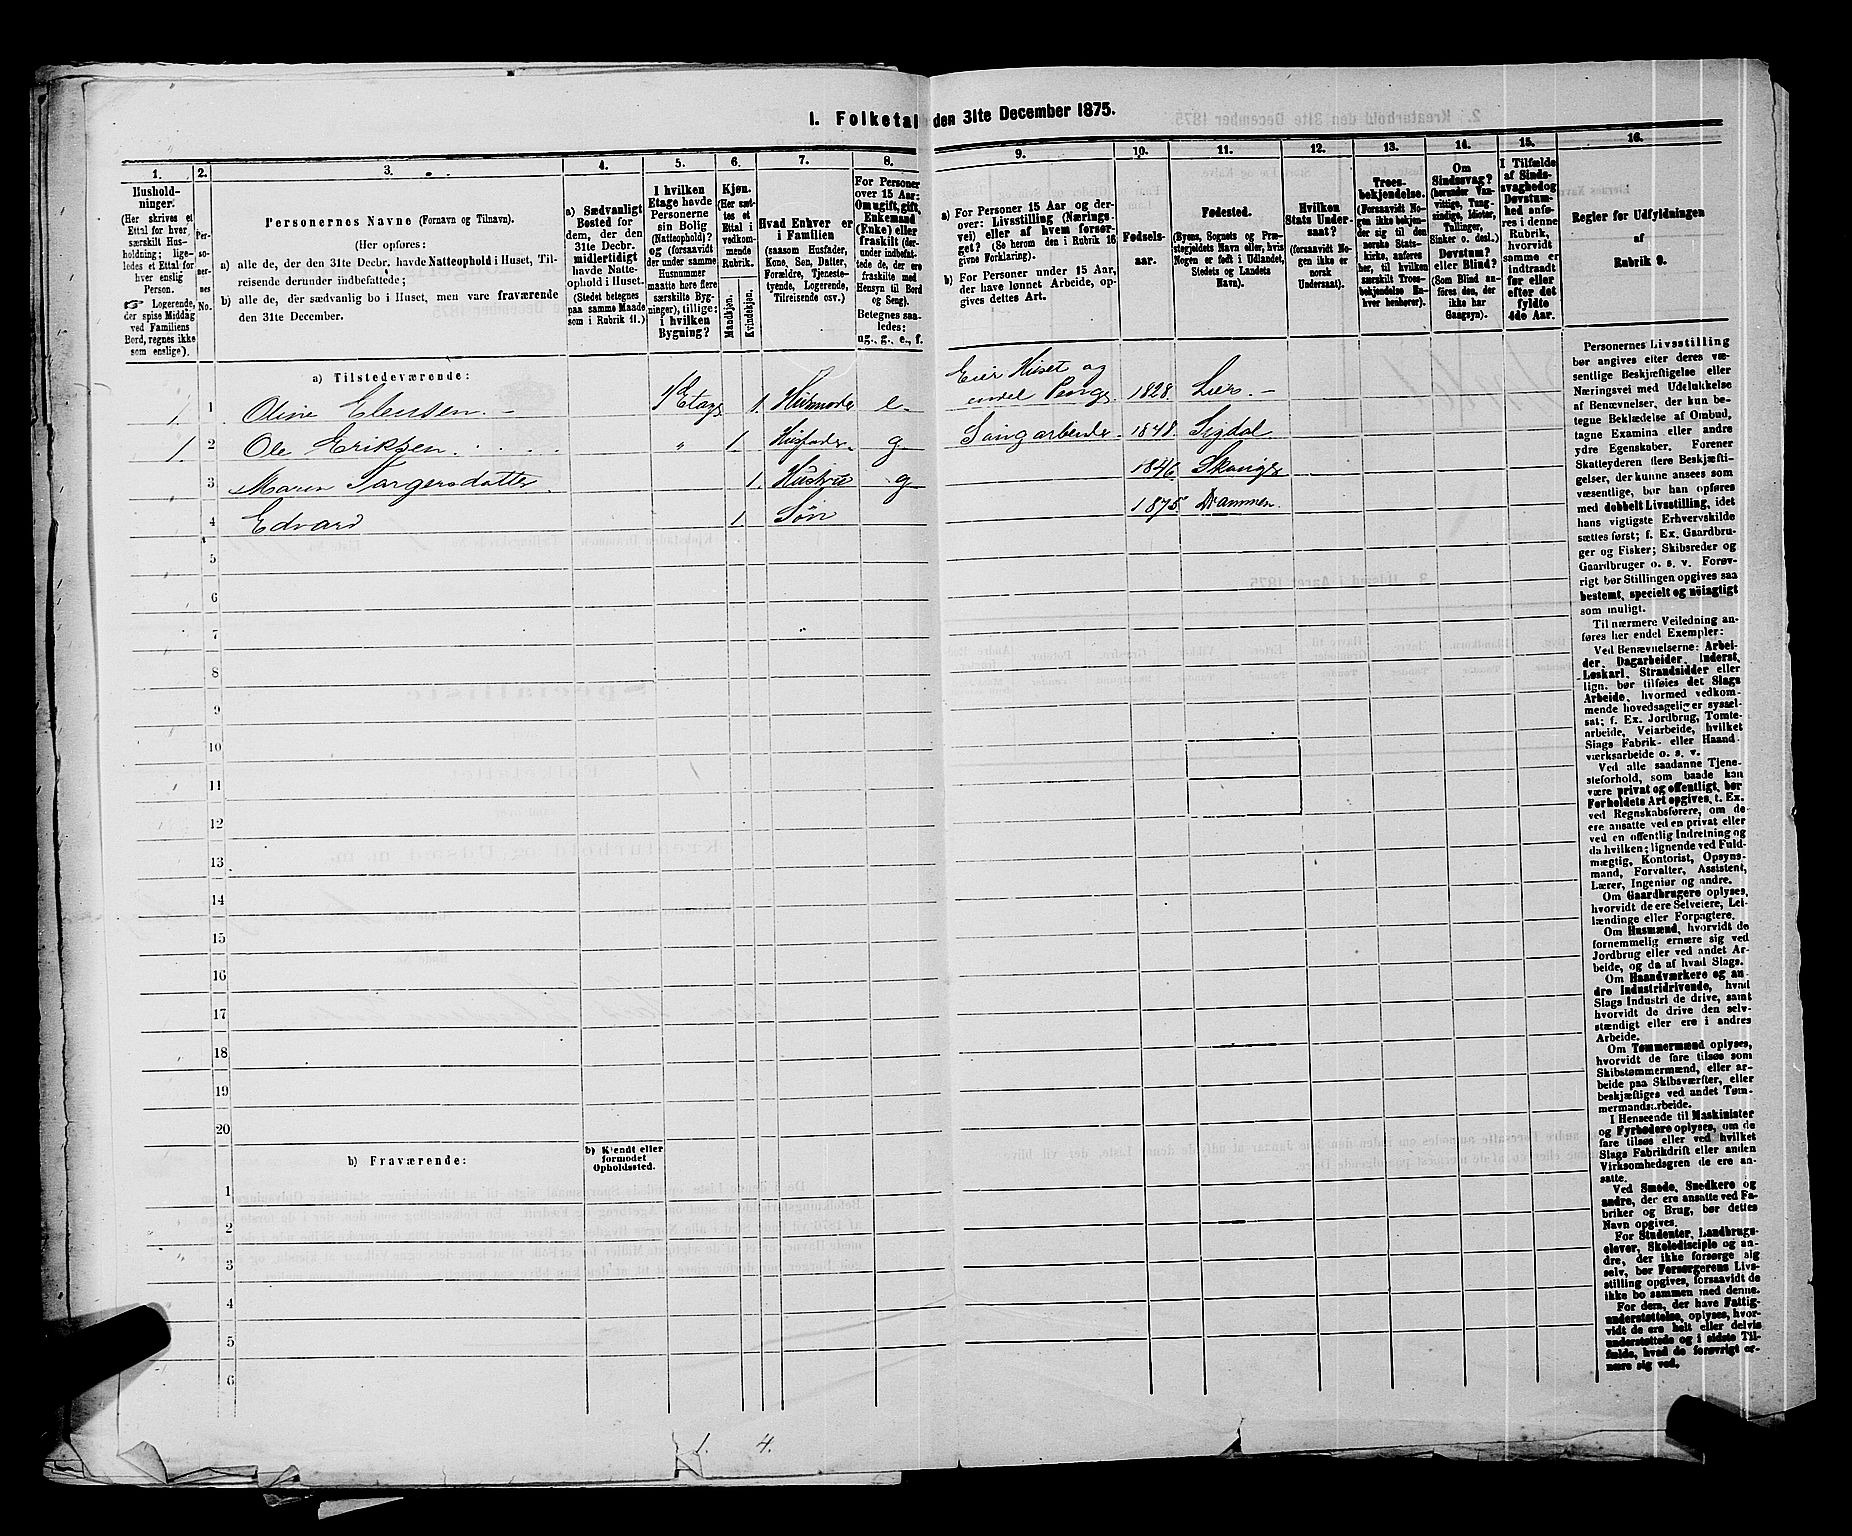 1. Folketal den 31te December 1875.
1. 2. 3. 4. 5. 6. 7. 8. 9. 10. 11. 12. 13. 14. 15. 16.
Hushold-
ninger.
(Her skrives et
Ettal for hver
særskilt Hus-
holdning; lige-
ledes et Ettal for
hver enslig
Person.
☞ Logerende,
der spise Middag
ved Familiens
Bord, regnes ikke
som enslige).
Per-
so-
ner-
nes
No.
Personernes Navne (Fornavn og Tilnavn).
(Her opføres:
a) alle de, der den 31te Decbr. havde Natteophold i Huset, Til-
reisende derunder indbefattede;
b) alle de, der sædvanlig bo i Huset, men vare fraværende
den 31te December.
a) Sædvanligt
Bosted for
dem, der den
31te Decbr.
midlertidigt
havde Natte-
ophold i Huset.
(Stedet betegnes
paa samme Maade
som i Rubrik 11.)
I hvilken
Etage havde
Personerne
sin Bolig
(Natteophold)?
og (forsaavidt
der under samme
Husnummer
maatte høre flere
særskilte Byg-
ninger), tillige:
i hvilken
Bygning?
Kjøn.
(Her sæt-
tes et
Ettal i
vedkom-
mende
Rubrik.
Mandkjøn.
Kvindekjøn.
Hvad Enhver er
i Familien
(saasom Husfader,
Kone, Søn, Datter,
Forældre, Tjeneste-
tyende, Logerende,
Tilreisende osv.)
For Personer
over 15 Aar:
Om ugift, gift,
Enkemand
(Enke) eller
fraskilt (der-
under indbefat-
tede de, der ere
fraskilte med
Hensyn til Bord
og Seng).
Betegnes saa-
ledes:
ug., g., e., f.
a) For Personer 15 Aar og der-
over: Livsstilling (Nærings-
vei) eller af hvem forsør-
get? (Se herom den i Rubrik 16
givne Forklaring).
b) For Personer under 15 Aar,
der have lønnet Arbeide, op-
gives dettes Art.
Fødsels-
aar.
Fødested.
(Byens, Sognets og Præ-
stegjeldets Navn eller, hvis
Nogen er født i Udlandet,
Stedets og Landets
Navn).
Hvilken
Stats Under-
saat?
(forsaavidt No-
gen ikke er
norsk
Undersaat).
Troes-
bekjendelse.
(Forsaavidt No-
gen ikke bekjen-
der sig til den
norske Stats-
kirke, anføres
her, til hvilken
særskilt Troes-
bekjendelse En-
hver henhører).
Om
Sindssvag?
(herunder Van-
vittige, Tung-
sindige, Idioter,
Tullinger,
Sinker o. desl.)
Døvstum?
eller Blind?
(Som Blind an-
føres den, der
ikke har
Gangsyn).
I Tilfælde
af Sinds-
svaghed og
Døvstum-
hed anfø-
res i denne
Rubrik,
hvorvidt
samme er
indtraadt
før eller
efter det
fyldte
4de Aar.
Regler for Udfyldningen
af
Rubrik 9.
a) Tilstedeværende:
1. 1 Oline Clausen. 1ste Etage 1. Husmoder e Eier Huset og endel Penge. 1828. Lier.
1 2 Ole Eriksen. " 1. Husfader g Saugarbeider. 1848. Sigdal.
3 Maren Torgersdatter 1. Hustru g 1846. Skouger
4 Edvard 1 Søn 1875 Drammen.
5
6
7
8
9
10
11
12
13
14
15
16
17
18
19
20
b) Fraværende:
b) Kjendt eller
formodet
Opholdssted.
1
2
3
4
5
6
1. 4.
Personernes Livsstilling
bør angives efter deres væ-
sentlige Beskjæftigelse eller
Næringsvei med Udelukkelse
af Benævnelser, der kun be-
tegne Beklædelse af Ombud,
tagne Examina eller andre
ydre Egenskaber. Forener
Skatteyderen flere Beskjæfti-
gelser, der kunne ansees som
væsentlige, bør han opføres
med dobbelt Livsstilling, idet
hans vigtigste Erhvervskilde
sættes først; f. Ex. Gaardbru-
ger og Fisker; Skibsreder og
Gaardbruger o. s. v. Forøv-
rigt bør Stillingen opgives saa
bestemt, specielt og nøiagtigt
som muligt.
Til nærmere Veiledning an-
føres her endel Exempler:
Ved Benævnelserne: Arbei-
der, Dagarbeider, Inderst,
Løskarl, Strandsidder eller
lign. bør tilføies det Slags
Arbeide, hvormed vedkom-
mende hovedsagelig er syssel-
sat; f. Ex. Jordbrug, Tomte-
arbeide, Veiarbeide, hvilket
Slags Fabrik- eller Haand-
værksarbeide o. s. v.
Ved alle saadanne Tjene-
steforhold, som baade kan
være privat og offentligt, bør
Forholdets Art opgives, t. Ex.
ved Regnskabsførere, om de
ere ansatte ved en privat eller
ved en offentlig Indretning og
da hvilken; lignende ved Fuld-
mægtig, Kontorist, Opsyns-
mand, Forvalter, Assistent,
Lærer, Ingeniør og andre.
Om Gaardbrugere oplyses,
hvorvidt de ere Selveiere, Lei-
lændinge eller Forpagtere.
Om Husmænd, hvorvidt de
fornemmelig ernære sig ved
Jordbrug eller ved andet Ar-
beide, og da af hvad Slags.
Om Haandværkere og an-
dre Industridrivende, hvad
Slags Industri de drive, samt
hvorvidt de drive den selv-
stændigt eller ere i andres
Arbeide.
Om Tømmermænd oplyses,
hvorvidt de fare tilsøs som
Skibstømmermænd, eller ar-
beide paa Skibsværfter, eller
beskjæftiges ved andet Tøm-
mermandsarbeide.
I Henseende til Maskinister
og Fyrbødere oplyses, om de
fare tilsøs eller ved hvilket
Slags Fabrikdrift eller anden
Virksomhedsgren de ere an-
satte.
Ved Smede, Snedkere og
andre, der ere ansatte ved Fa-
briker og Brug, bør dettes
Navn opgives.
For Studenter, Landbrugs-
elever, Skoledisciple og an-
dre, der ikke forsørge sig
selv, bør Forsørgerens Livs-
stilling opgives, forsaavidt de
ikke bo sammen med denne.
For dem, der have Fattig-
understøttelse, oplyses, hvor-
vidt de ere helt eller delvis
understøttede og i sidste Til-
fælde, hvad de forøvrigt er-
nære sig ved.